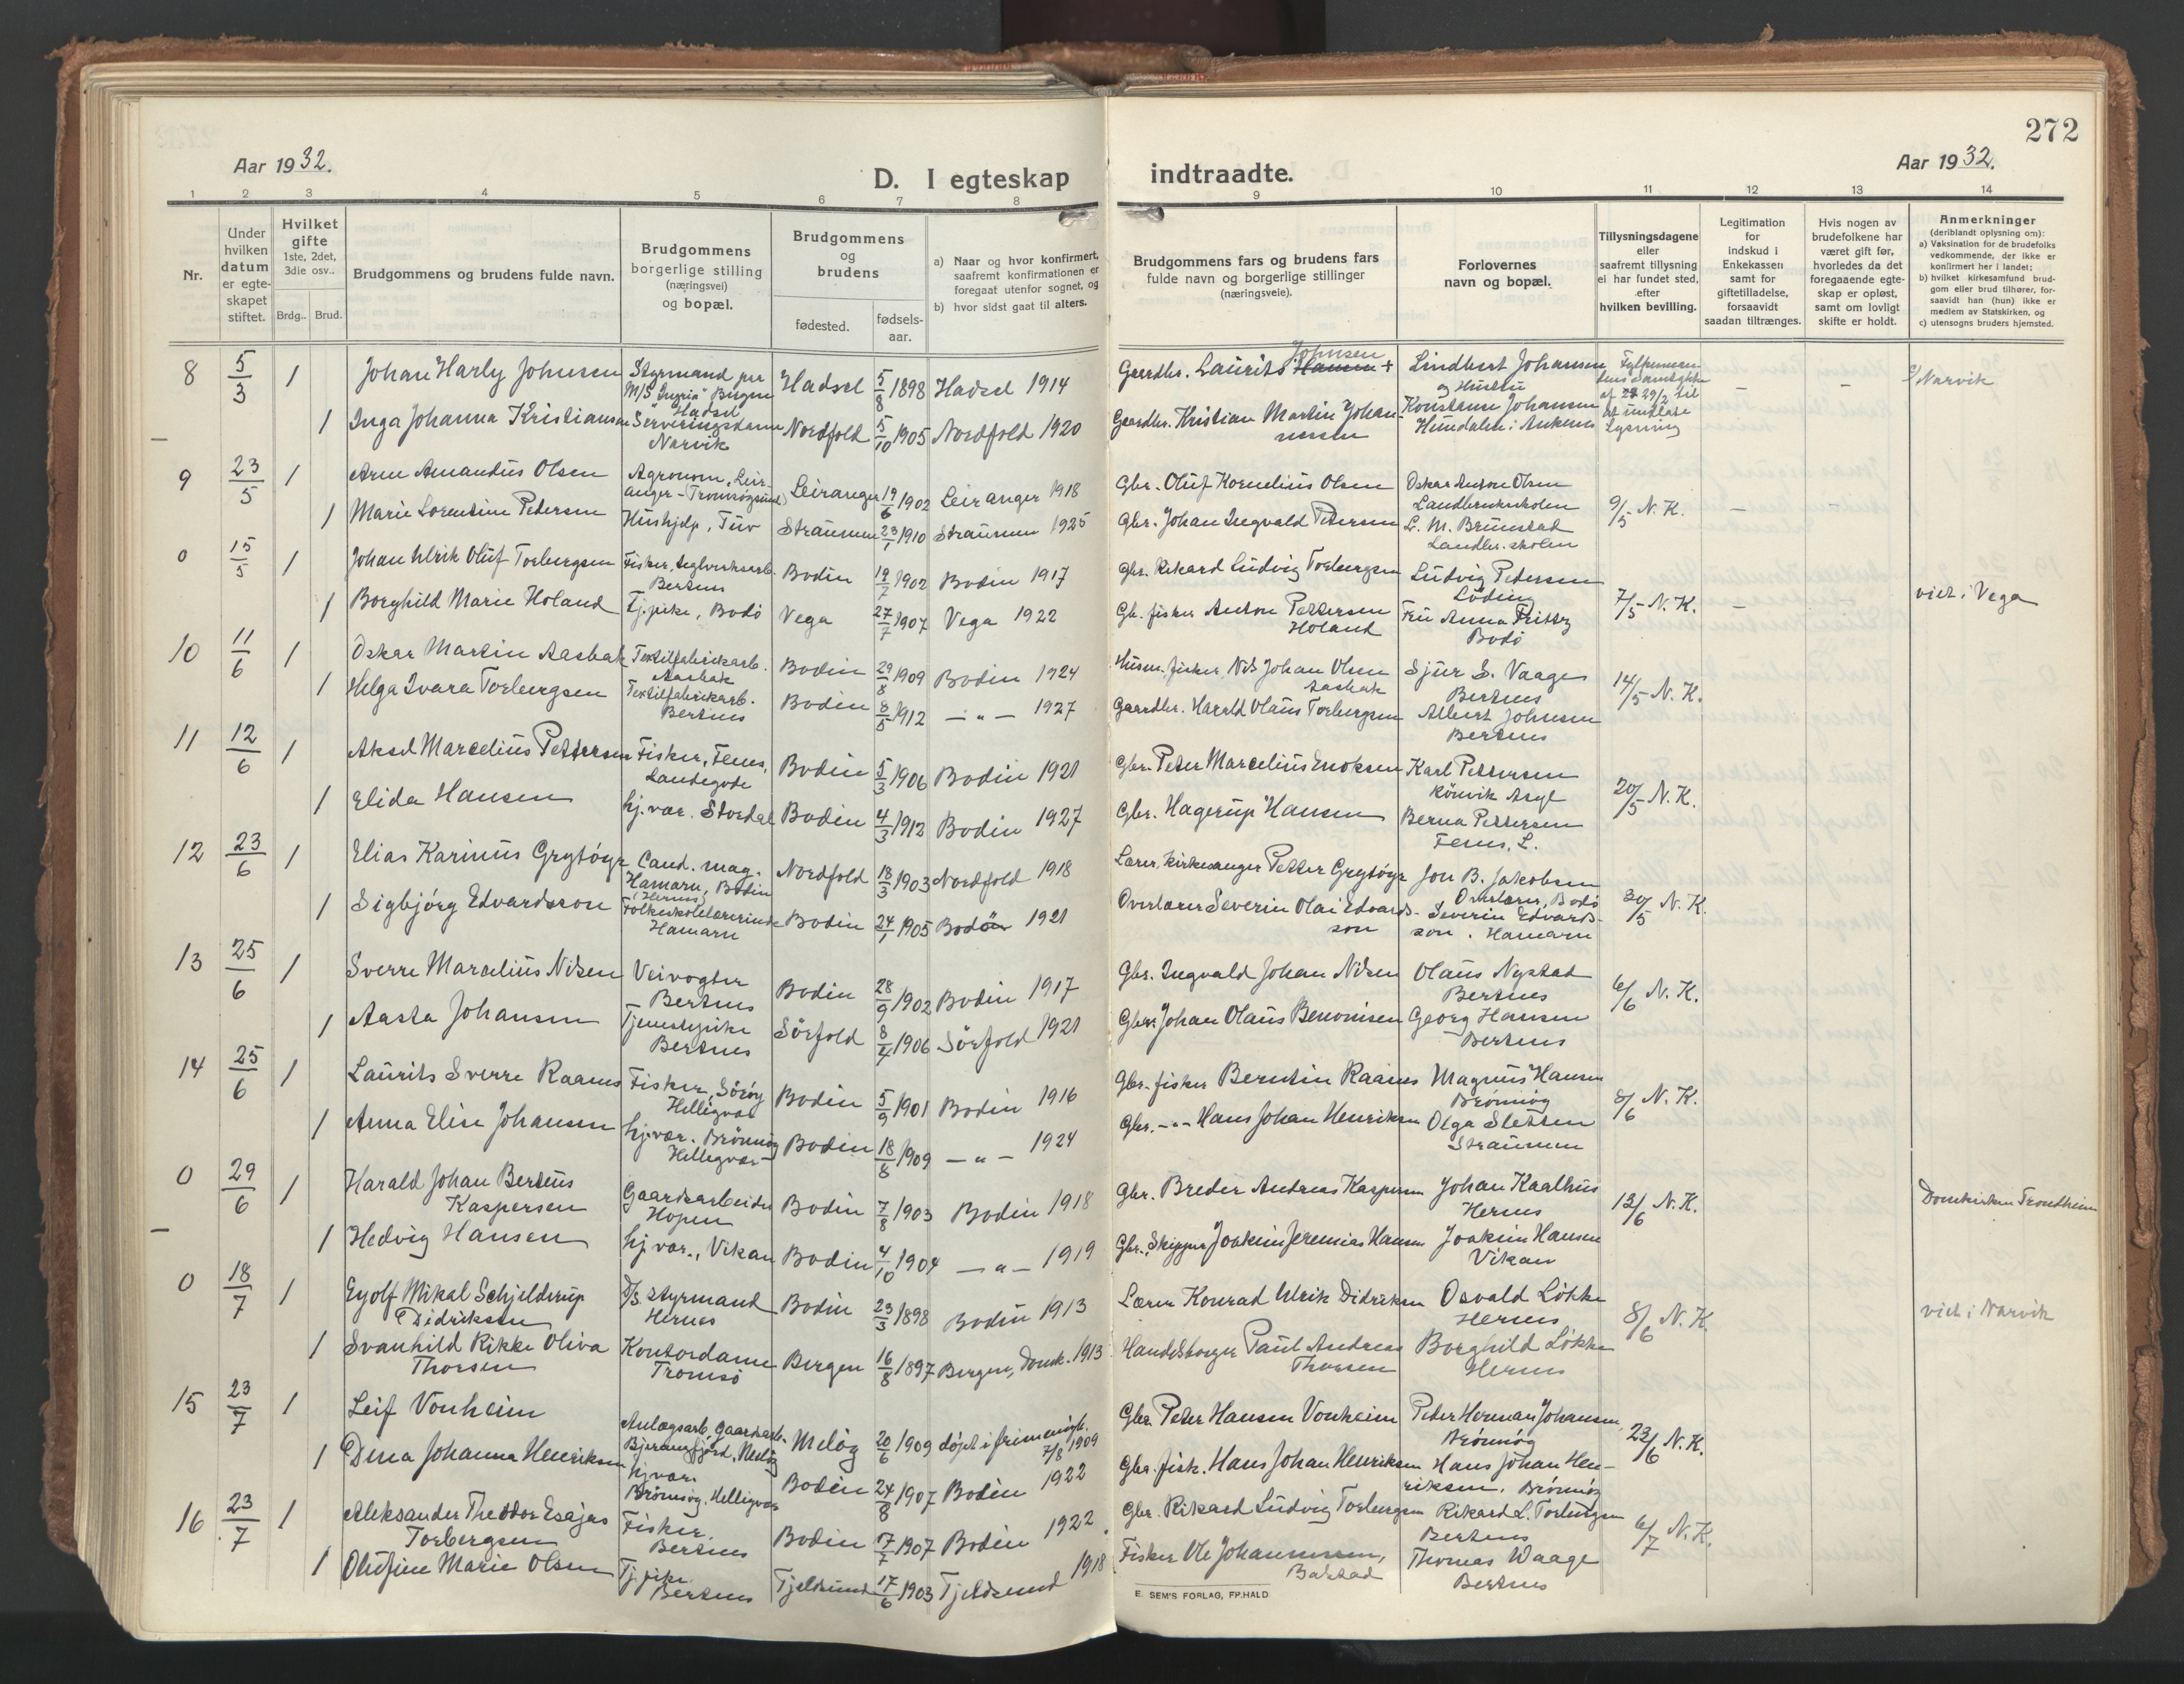 272
Aar 1932.
D. I egteskap indtraadte.
Aar 1932.
1 2 3 4 5 6 7 8 9 10 11 12 13 14
Nr.
Under hvilken datum er egteskapet stiftet.
Hvilket gifte 1ste, 2det, 3die osv..
Brdg.. Brud.
Brudgommens og brudens fulde navn.
Brudgommens borgerlige stilling (næringsvei) og bopæl.
Brudgommens og brudens
fødested.
fødsels-aar.
a) Naar og hvor konfirmert, saafremt konfirmationen er foregaat utenfor sognet, og
b) hvor sidst gaat til alters.
Brudgommens fars og brudens fars fulde navn og borgerlige stillinger (næringsveie).
Forlovernes navn og bopæl.
Tillysningsdagene eller saafremt tillysning ei har fundet sted, efter hvilken bevilling.
Legitimation for indskud i Enkekassen samt for giftetilladelse, forsaavidt saadan tiltrænges.
Hvis nogen av brudefolkene har været gift før, hvorledes da det foregaaende egteskap er opløst, samt om lovligt skifte er holdt.
Anmerkninger (deriblandt oplysning om):
a) Vaksination for de brudefolks vedkommende, der ikke er konfirmert her i landet;
b) hvilket kirkesamfund brudgom eller brud tilhører, forsaavidt han (hun) ikke er medlem av Statskirken, og
c) utensogns bruders hjemsted.
8 5/3 1 Johan Harly Johnsen Styrmand paa M/S "Ingria" Bergen Hadsel Hadsel 5/8 1898 Hadsel 1914 Gaardbr. Laurits Hansen Johnsen + Lindbert Johansen og Hustru Narvik
1 Inga Johanna Kristiansen Serveringsdame Narvik Nordfold 5/10 1905 Nordfold 1920 Gaardbr. Kristian Martin Johannessen Konstanse Johansen Hundalen i Ankenes
9 23/5 1 Arne Amandus Olsen Agronom, Leiranger - Tromsøysund) Leiranger 19/6 1902 Leiranger 1918 Gbr. Oluf Kornelius Olsen Oskar Anton Olsen Landbruksskolen 9/5 N. K.
1 Marie Lorentine Petersen Hushjelp, Tuv Straumen 23/1 1910 Straumen 1925 Gbr. Johan Ingvald Petersen L. M. Brunstad Landbr. skolen
0 15/5 1 Johan Ulrik Oluf Torbergsen Fisker, teglverksarb. Bertnes Bodin 19/7 1902 Bodin 1917 Gbr. Rikard Ludvig Torbergsen Ludvig Petersen Løding 7/5 N. K. viet i Vega
1 Borghild Marie Holand Tj.pike, Bodø Vega 27/7 1907 Vega 1922 Gb. fisker Anton Pettersen Holand Fru Anna Fritzy Bodø
10 11/6 1 Oskar Martin Aasbak Textilfabrikarb. Aasbak Bodin 29/8 1909 Bodin 1924 Husm. fisker Nils Johan Olsen Aasbak Sjur S. Vaage Bertnes 14/5 N. K.
1 Helga Ivara Torbergsen Textilfabrikarb. Bertnes Bodin 8/5 1912 — " — 1927 Gaardbr. Harald Olaus Torbergsen Albert Johnsen Bertnes
11 12/6 1 Aksel Marcelius Pettersen Fisker, Fenes, Landegode Bodin 5/3 1906 Bodin 1921 Gbr. Peter Marcelius Enoksen Karl Pettersen Rønvik Asyl 20/5 N. K.
1 Elida Hansen hj. vær. Stordal Bodin 4/3 1912 Bodin 1927 Gbr. Hagerup Hansen Berna Pettersen Fenes, L.
12 23/6 1 Elias Karinus Grytøyr Cand. mag. Hamarn, Bodin (Hernes) Nordfold 18/3 1903 Nordfold 1918 Lærer, kirkesanger Petter Grytøyr Jon B. Jakobsen Overlærer, Bodø 30/5 N. K.
1 Sigbjørg Edvardsson Folkeskolelærerinde Hamarn Bodin 24/1 1905 Bodø 1921 Overlærer Severin Olai Edvardsson Severin Edvardsson, Hamarn
13 25/6 1 Sverre Marcelius Nilsen Veivogter Bertnes Bodin 28/9 1902 Bodin 1917 Gbr. Ingvald Johan Nilsen Olaus Nystad Bertnes 6/6 N. K.
1 Aasta Johansen Tjenestepike Bertnes Sörfold 8/4 1906 Sörfold 1921 Gbr. Johan Olaus Benonisen Georg Hansen Bertnes
14 25/6 1 Laurits Sverre Raanes Fisker, Sørøy Helligvær Bodin 5/9 1901 Bodin 1916 Gbr. fisker Berntin Raanes Magnus Hansen Brønnøy 8/6 N. K.
1 Anna Elise Johansen hj. vær. Brönnøy Helligvær Bodin 18/8 1909 — " — 1924 Gbr. - " - Hans Johan Henriksen Olga Sletten Straumen
0 29/6 1 Harald Johan Berteus Kaspersen Gaardsarbeider Hopen Bodin 7/8 1903 Bodin 1918 Gbr. Breder Andreas Kaspersen Johan Kaalhus Hernes 13/6 N. K. Domkirken Trondheim
1 Hedvig Hansen hj. vær., Vikan Bodin 4/10 1904 — " — 1919 Gbr. Skipper Joakim Jeremias Hansen Joakim Hansen Vikan
0 18/7 1 Eyolf Mikal Schjelderup Didriksen D/S. styrmand Hernes Bodin 23/3 1898 Bodin 1913 Lærer Konrad Ulrik Didriksen Osvald Løkke Hernes 8/6 N. K. viet i Narvik
1 Svanhild Rikke Oliva Thorsen Kontordame Tromsø Bergen 16/8 1897 Bergen, Domk. 1913 Handelsborger Paul Andreas Thorsen Borghild Løkke Hernes
15 23/7 1 Leif Vonheim Anlægsarb., gaardsarb. Bjerangsfjord, Meløy Meløy 20/6 1909 døpt i frimenigh. 7/8 1909 Gbr. Peter Hansen Vonheim Peder Herman Johansen Brönnøy 23/6 N. K.
1 Dina Johanna Henriksen hj. vær. Brønnøy, Helligvær Bodin 24/8 1907 Bodin 1922 Gbr. fisk. Hans Johan Henriksen Hans Johan Henriksen, Brönnøy
16 23/7 1 Aleksander Theodor Esajas Torbergsen Fisker. Bertnes Bodin 7/7 1907 Bodin 1922 Gbr. Rikard Ludvig Torbergsen Rikard L. Torbergsen Bertnes 6/7 N. K.
1 Olufine Marie Olsen Tj. pike Bertnes Tjeldsund 17/6 1903 Tjeldsund 1918 Fisker Ole Johannessen, Balstad Thomas Waage Bertnes
E. SEM'S FORLAG, FR.HALD